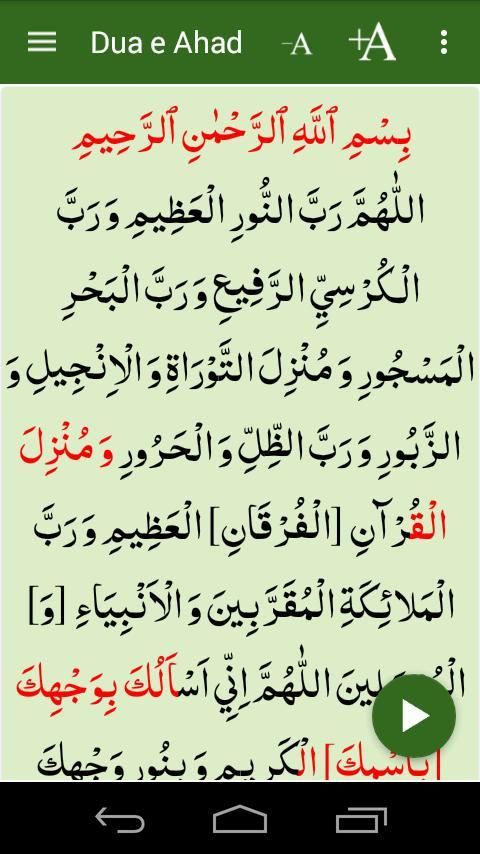 Dua e Ahad
-A
+A
بِسْمِ ٱللَّهِ ٱلرَّحْمٰنِ ٱلرَّحِيمِ
اللّٰهُمَّ رَبَّ النُّورِ الْعَظِيمِ وَ رَبَّ
الْكُرْسِيِّ الرَّفِيعِ وَ رَبَّ الْبَحْرِ
الْمَسْجُورِ وَ مُنْزِلَ التَّوْرَاةِ وَ الْاِنْجِيلِ وَ
الزَّبُورِ وَ رَبَّ الظِّلِّ وَ الْحَرُورِ وَ مُنْزِلَ
الْقُرْآنِ [الْفُرْقَانِ] الْعَظِيمِ وَ رَبَّ
الْمَلائِكَةِ الْمُقَرَّبِينَ وَ الْاَنْبِيَاءِ [وَ]
اللّٰهُمَّ اِنِّي اَسْاَلُكَ بِوَجْهِكَ
[بِاسْمِكَ] الْكَرِيمِ وَ بِنُورِ وَجْهِكَ